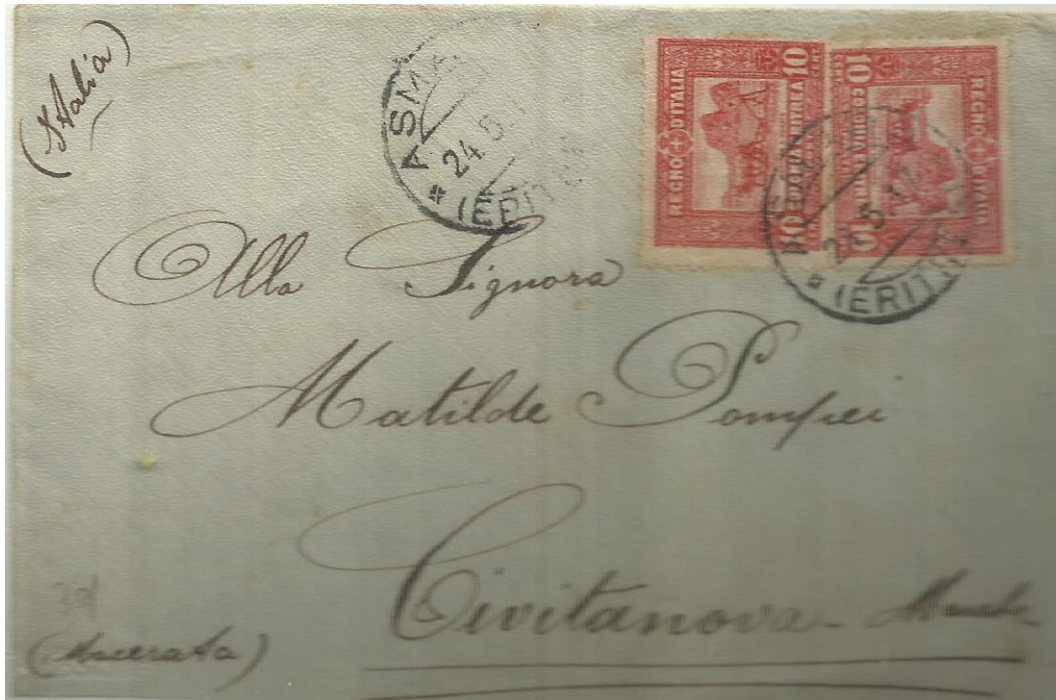 (Italia)
ASMA
24.5.
(ERITREA
REGNO D'ITALIA
10 CENT
COLONIA ERITREA
10
REGNO D'ITALIA
10 CENT
COLONIA ERITREA
10
24.5.17
(ERITREA
Alla Signora
Matilde Pompei
Civitanova Marche
(Macerata)